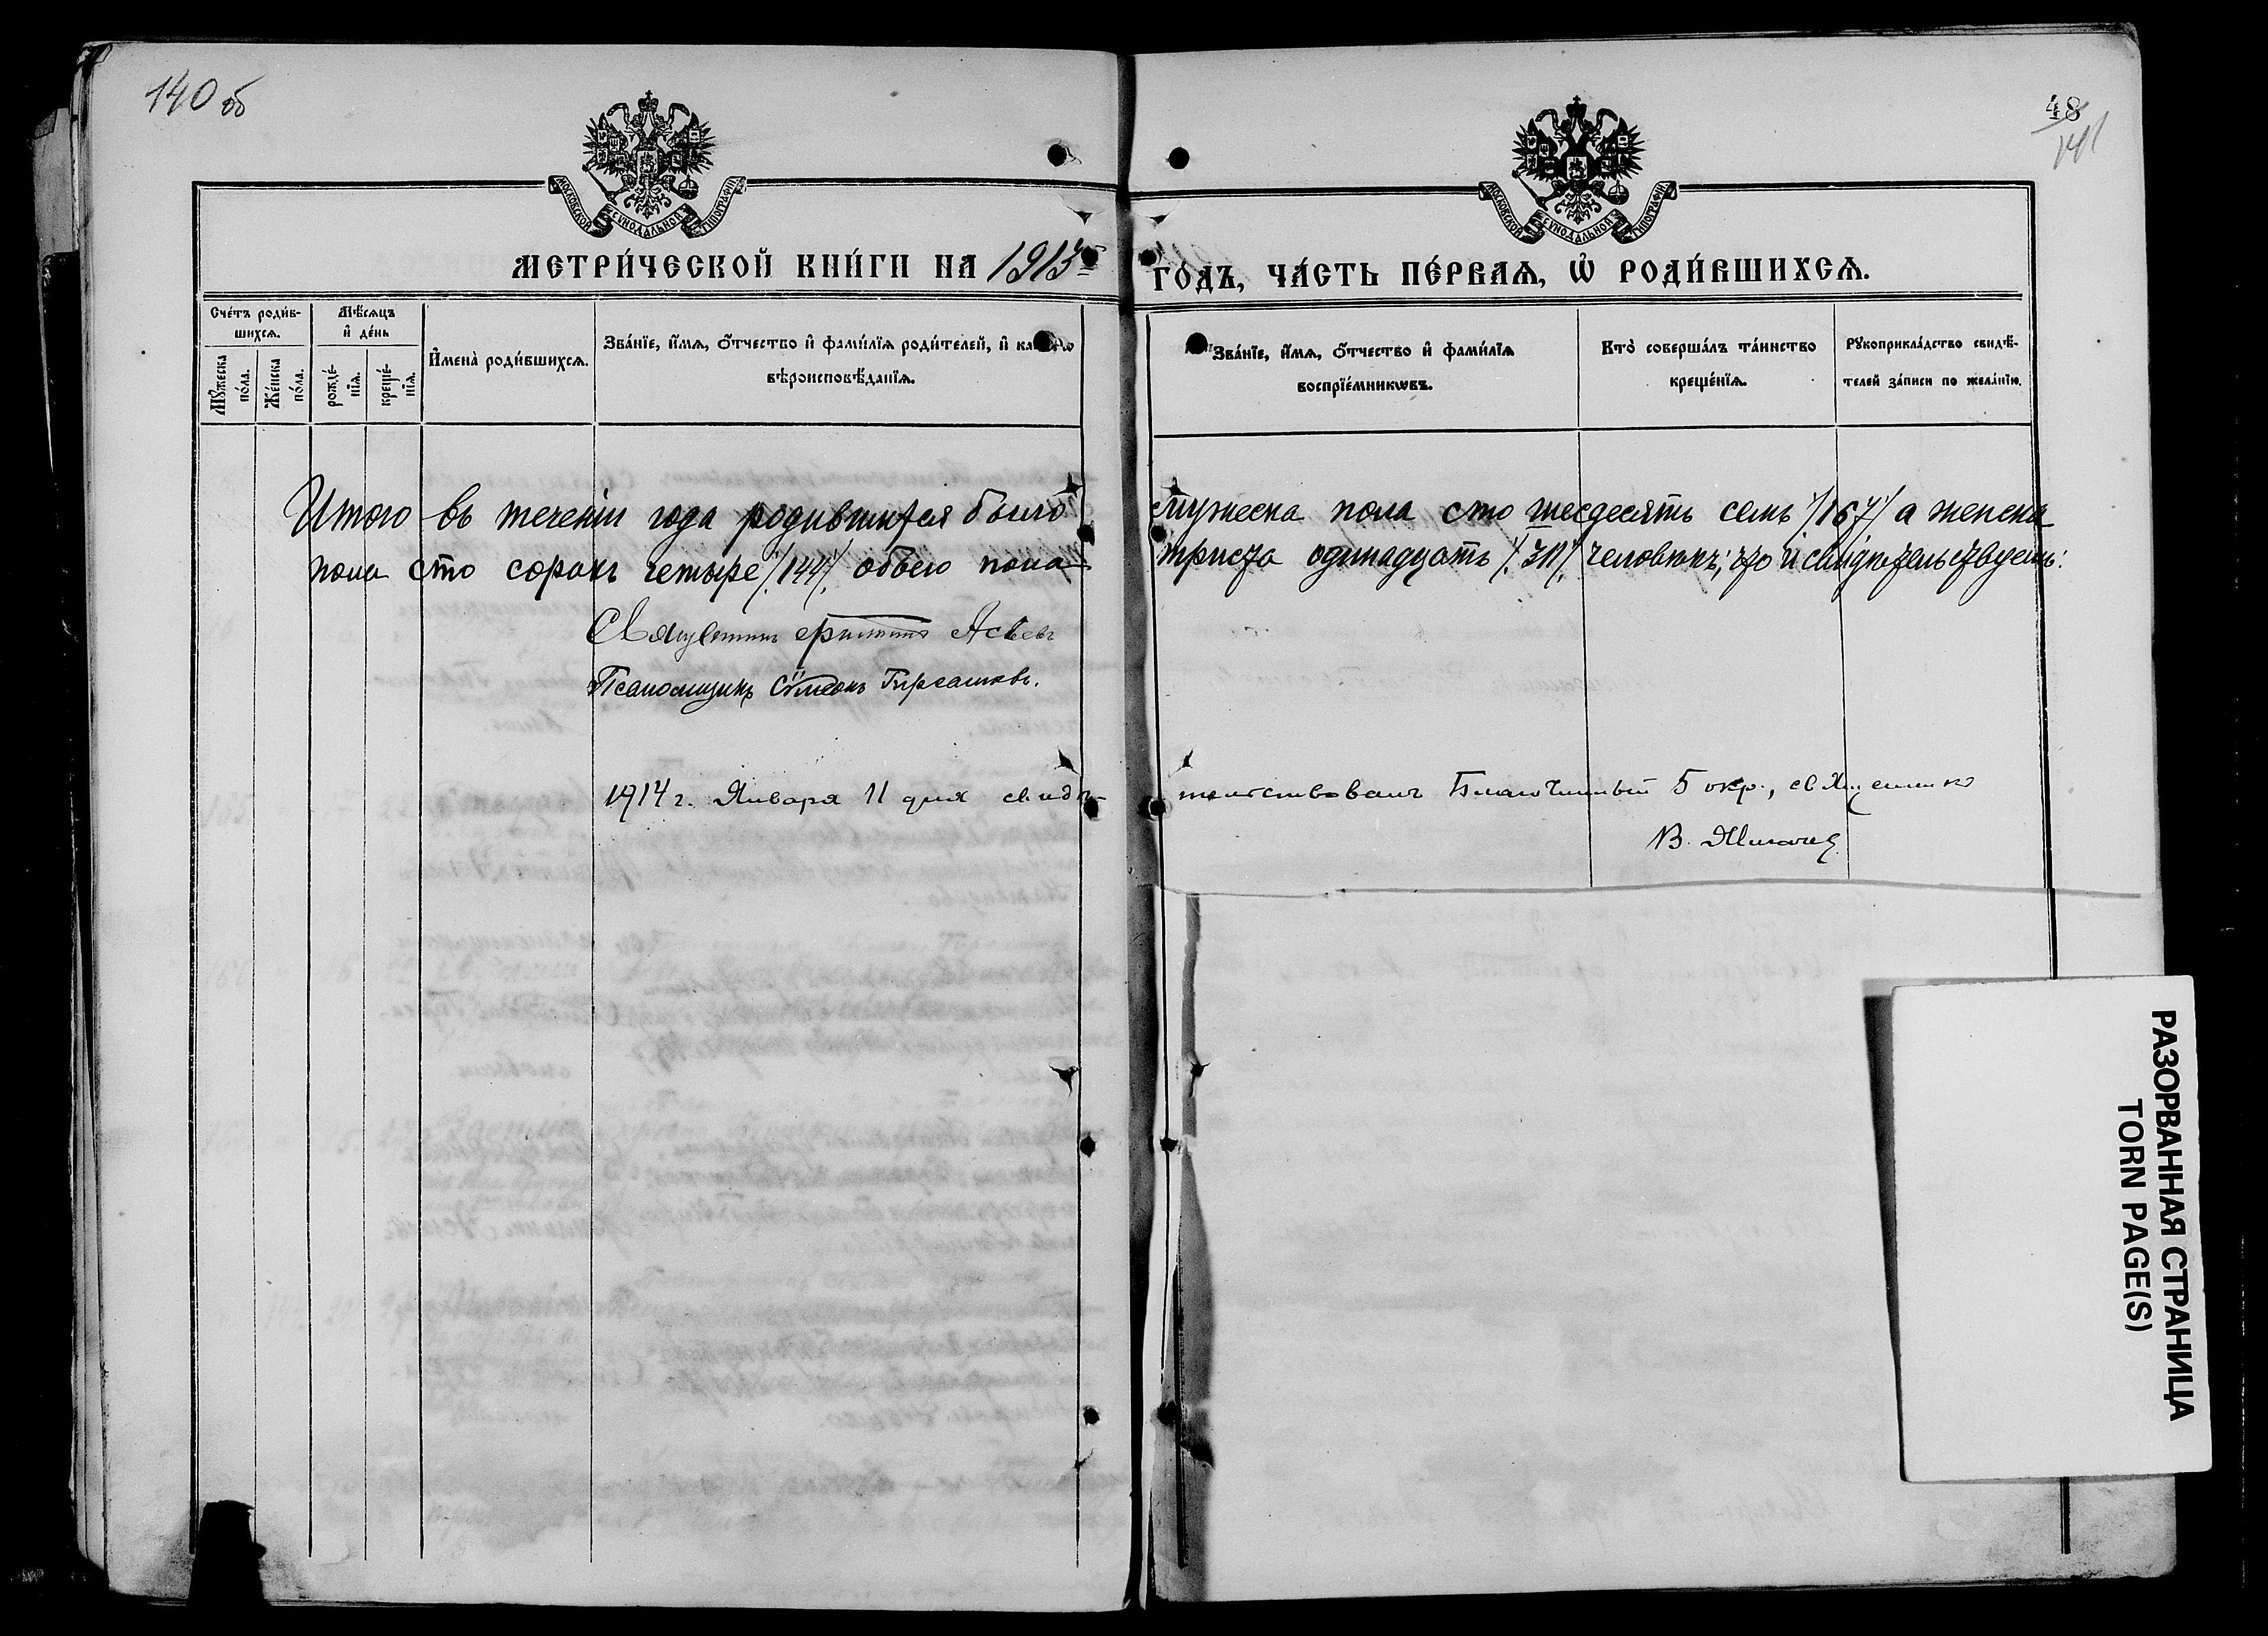 140 об
48
141
МОСКОВСКОЙ СѴНОДАЛЬНОЙ ТИПОГРАФІИ
МОСКОВСКОЙ СѴНОДАЛЬНОЙ ТИПОГРАФІИ
МЕТРИ́ЧЕСКОЙ КНИ́ГИ НА 1913 ГО́ДЪ, ЧА́СТЬ ПЕ́РВАѦ, Ѡ҆ РОДИ́ВШИХСѦ.
Сче́тъ роди́в-
шихсѧ.
Мꙋ́жеска
по́ла.
Же́нска
по́ла.
Мѣ́сѧцъ
и҆ де́нь
рожде́-
нїѧ.
креще́-
нїѧ.
И҆мена̀ роди́вшихсѧ.
Зва́нїе, и҆́мѧ, ѻ҆́тчество и҆ фами́лїѧ роди́телей, и҆
вѣроисповѣ́данїѧ.
Зва́нїе, и҆́мѧ, ѻ҆́тчество и҆ фами́лїѧ
воспрїе́мникѡвъ.
Кто̀ соверша́лъ та́инство
креще́нїѧ.
Рꙋкоприкла́дство свидѣ́-
телей за́писи по жела́нїю.
Итого въ теченіи года родившихся было мужеска пола сто шесдесятъ семь /167/ а женска
пола сто сорокъ четыре /144/, обоего пола триста одинадцать /311/ человѣкъ; что и свидѣтельствуемъ:
Священникъ
Псаломщикъ Сѵмеонъ
1914 г. Января 11 дня свидѣтельствовалъ Благочинный 5 окр., священникъ
В.
РАЗОРВАННАЯ СТРАНИЦА
TORN PAGE(S)